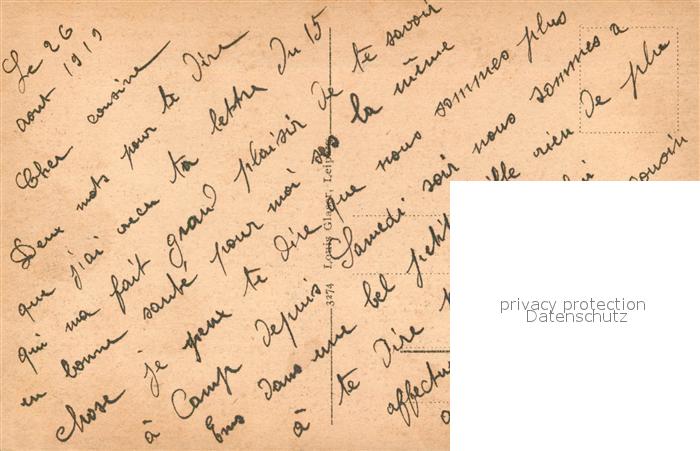 Le 26
aout 1919
Cher cousine
Deux mots pour te dire
que j'ai recu ta lettre du 15
qui ma fait grand plaisir de te savoir
en bonne santé pour moi la même
chose je peux te dire que nous sommes plus
à Camp depuis Samedi soir nous sommes a
Ems dans une bel petit rien de plu
à te dire
cousin
3274 Louis Glaser, Leipzig
privacy protection
Datenschutz